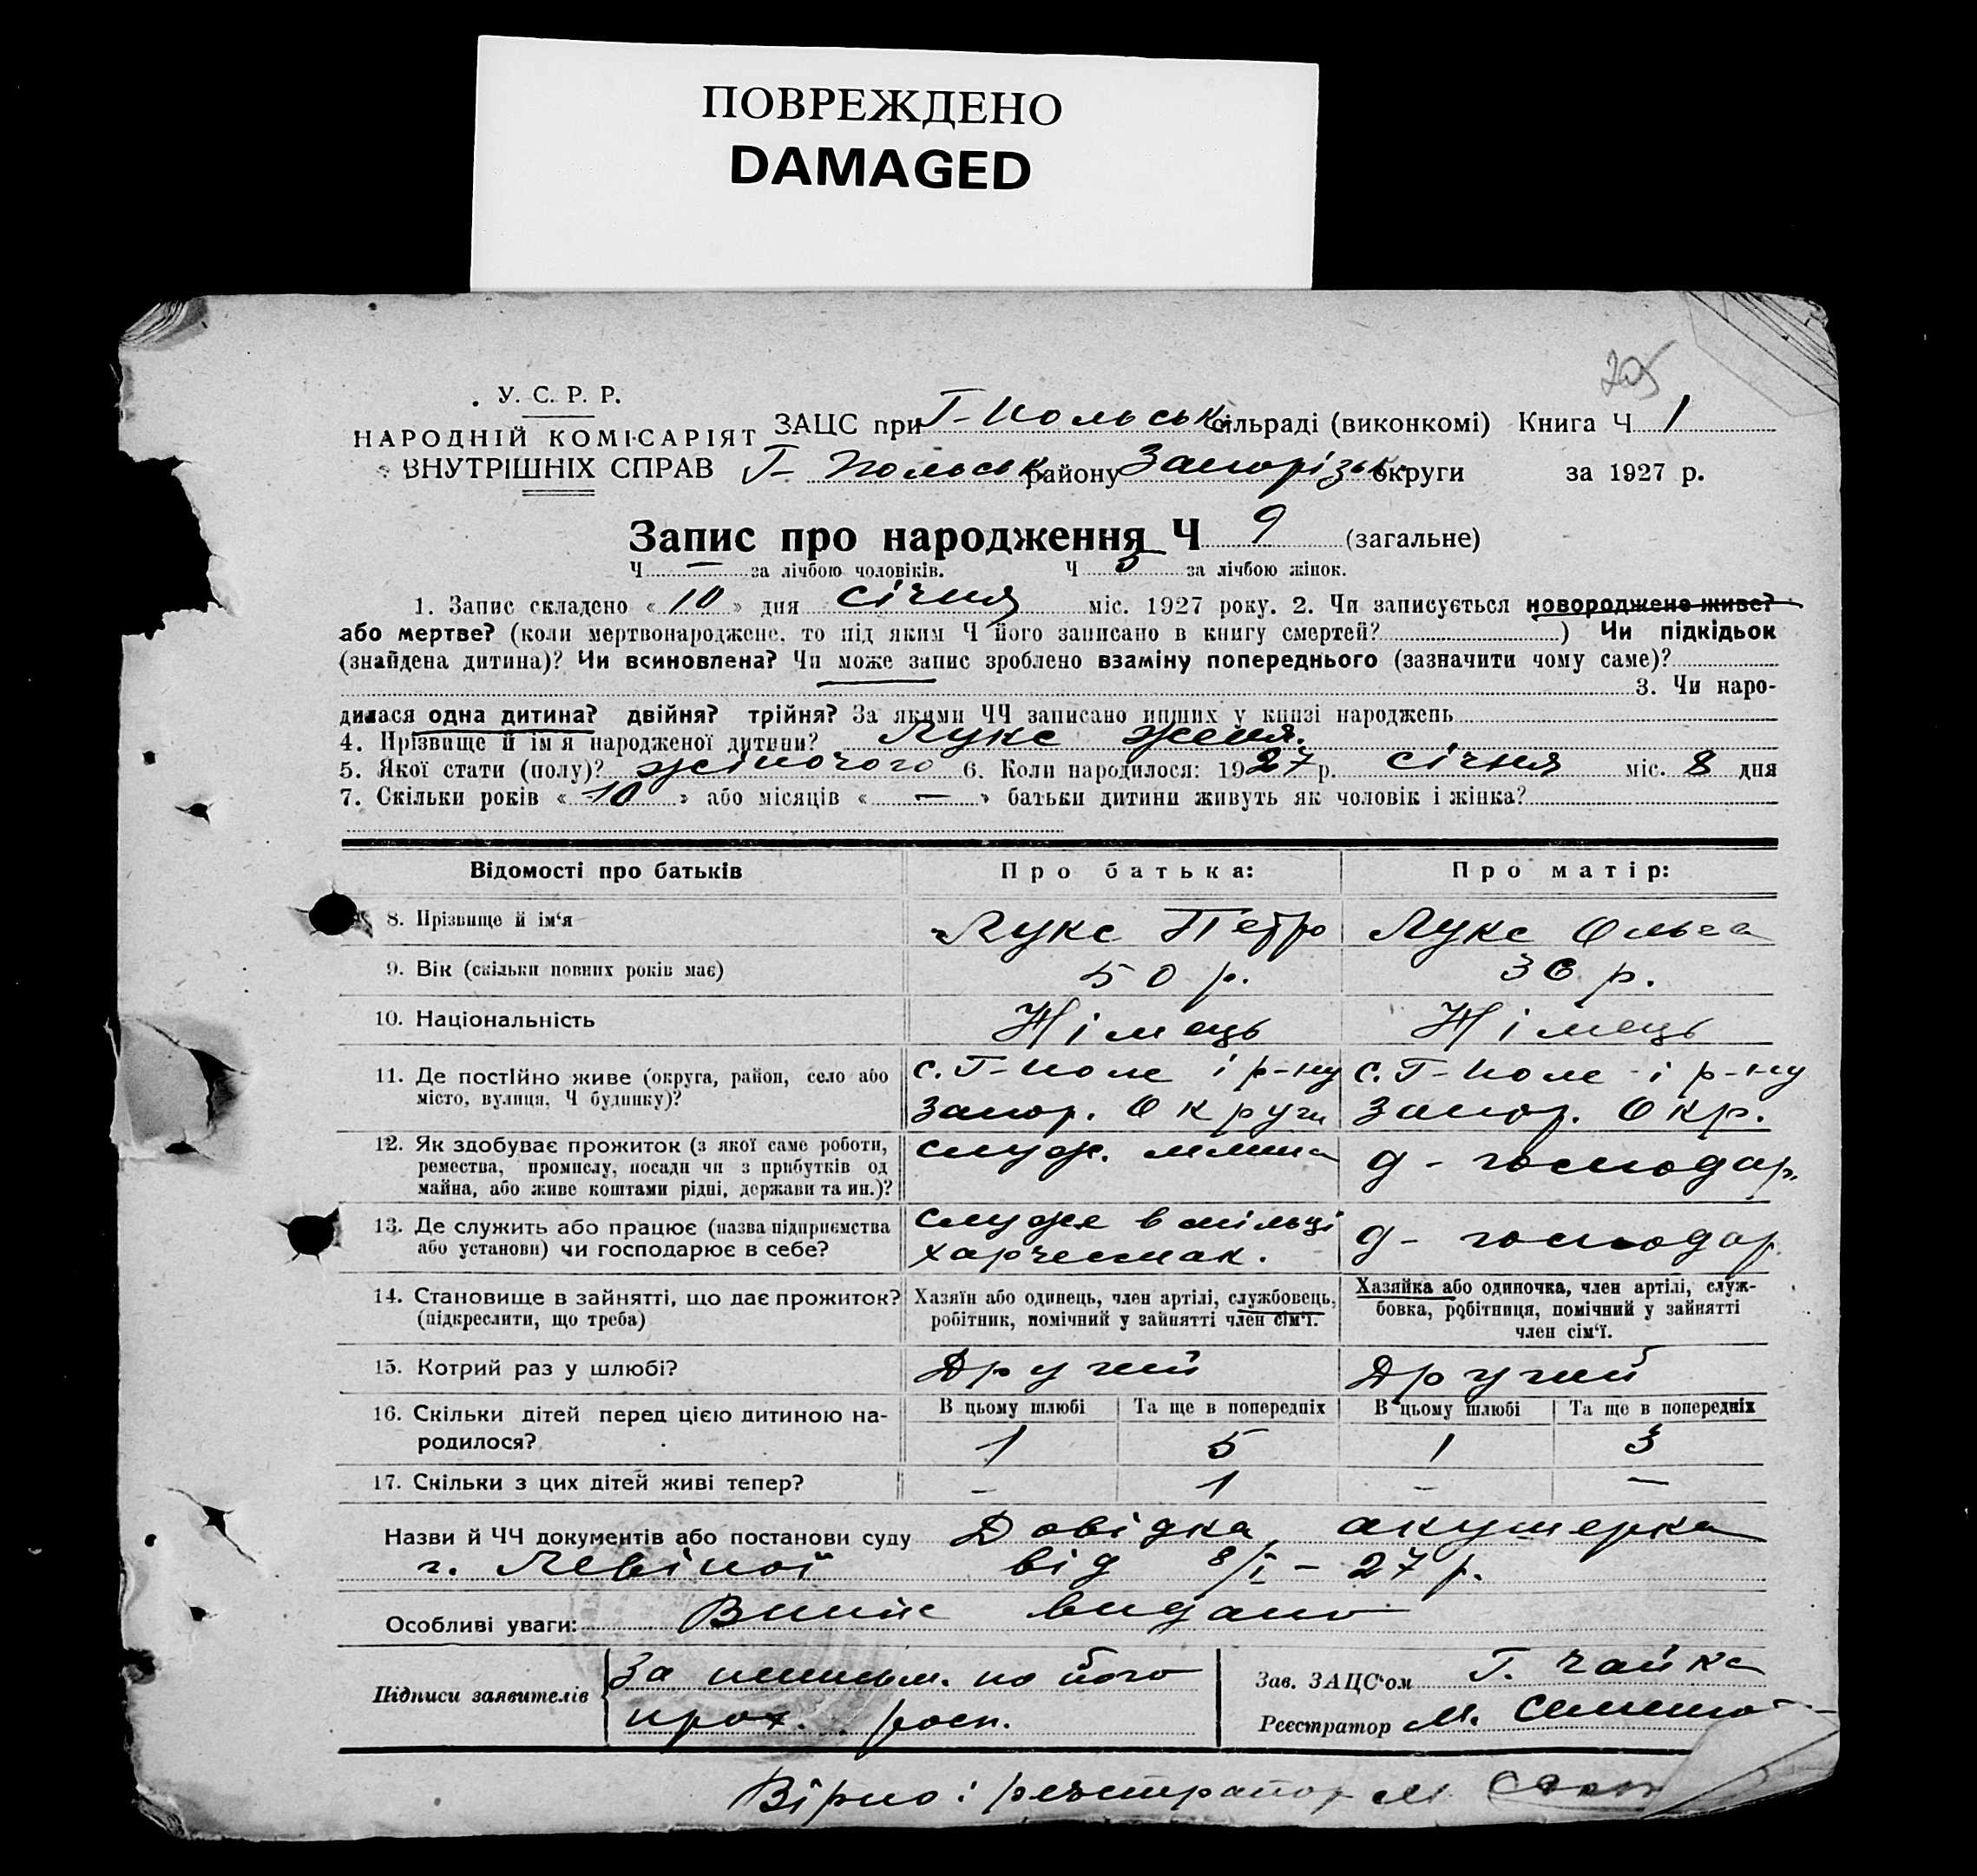 ПОВРЕЖДЕНО
DAMAGED
205
У. С. Р. Р.
НАРОДНІЙ КОМІСАРІЯТ
ВНУТРІШНІХ СПРАВ
ЗАЦС при Г-Польськ. сільраді (виконкомі) Книга Ч 1
Г- Польськ. району Запорізьк. округи за 1927 р.
Запис про народження Ч 9 (загальне)
Ч — за лічбою чоловіків. Ч 5 за лічбою жінок.
1. Запис складено « 10 » дня січня міс. 1927 року. 2. Чи записується новороджене живе?
або мертве? (коли мертвонароджене, то під яким Ч його записано в книгу смертей? ) Чи підкідьок
(знайдена дитина)? Чи всиновлена? Чи може запис зроблено взаміну попереднього (зазначити чому саме)?
3. Чи наро-
дилася одна дитина? двійня? трійня? За якими ЧЧ записано инших у книзі народжень
4. Прізвище й ім'я народженої дитини? Лукс Женя.
5. Якої стати (полу)? жіночого 6. Коли народилося: 1927 р. січня міс. 8 дня
7. Скільки років « 10 » або місяців « — » батьки дитини живуть як чоловік і жінка?
Відомості про батьків Про батька: Про матір:
8. Прізвище й ім'я Лукс Петро Лукс Ольга
9. Вік (скільки повних років має) 50 р. 36 р.
10. Національність Німець Німець
11. Де постійно живе (округа, район, село або с. Г-Поле і р-ну с. Г-Поле і р-ну
місто, вулиця, Ч будинку)? Запор. Округи Запор. Окр.
12. Як здобуває прожиток (з якої саме роботи, служ. млина д-господар.
ремества, промислу, посади чи з прибутків од
майна, або живе коштами рідні, держави та ин.)?
13. Де служить або працює (назва підприємства служе в млині д-господар.
або установи) чи господарює в себе?
14. Становище в зайнятті, що дає прожиток? Хазяїн або одинець, член артілі, службовець, Хазяйка або одиночка, член артілі, служ-
(підкреслити, що треба) робітник, помічний у зайнятті член сім'ї. бовка, робітниця, помічний у зайнятті
член сім'ї.
15. Котрий раз у шлюбі? Другий Другий
16. Скільки дітей перед цією дитиною на- В цьому шлюбі Та ще в попередніх В цьому шлюбі Та ще в попередніх
родилося? 1 5 1 3
17. Скільки з цих дітей живі тепер? – 1 – –
Назви й ЧЧ документів або постанови суду Довідка акушерка
г. Левіної від 8/I – 27 р.
Особливі уваги: Випис видано
Підписи заявителів За неписьм. по його
прох. росп.
Зав. ЗАЦС'ом Г. Чайка
Реєстратор М.
Вірно: реєстратор М.